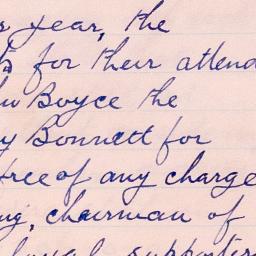 s year, the
for their attend
Boyce the
y Bonnett for
free of any charge
ng, chairman of
loyal supporter